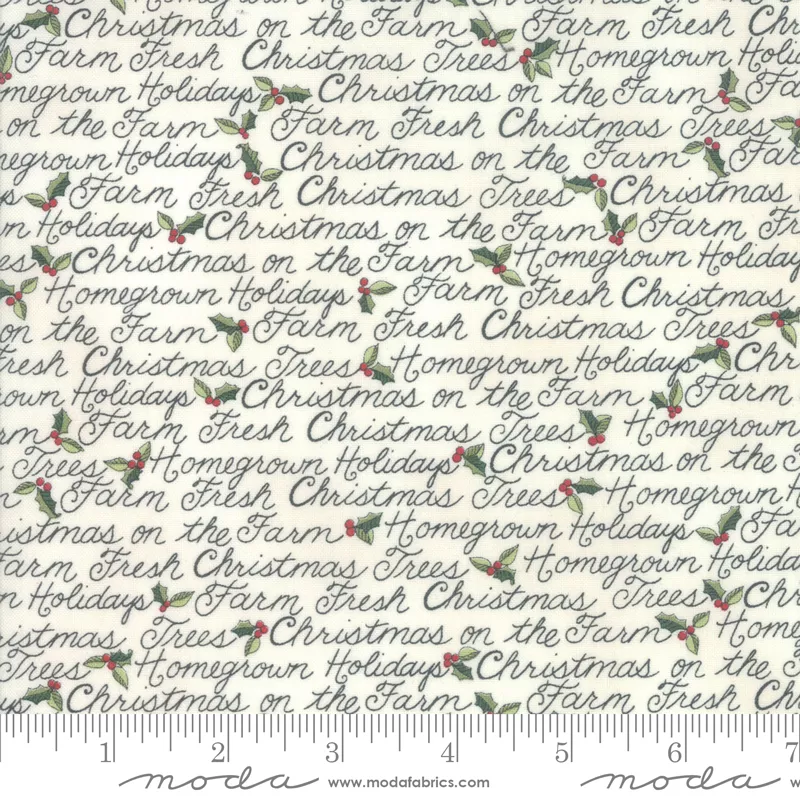 Christmas on the Farm Farm Fresh Christmas
Farm Fresh Christmas Trees Homegrown
Holidays Christmas on the Farm
on the Farm Farm Fresh Christmas Trees
Holidays Christmas on the Farm
Farm Fresh Christmas Trees Christmas
Holidays Christmas on the Farm Farm
Christmas on the Farm Homegrown Holidays
Homegrown Holidays Farm Fresh Christmas
on the Farm Farm Fresh Christmas Trees
Christmas Trees Homegrown Holidays
Holidays Christmas on the Farm Farm
Farm Fresh Christmas Trees Homegrown
Trees Homegrown Holidays Christmas on the
Farm Fresh Christmas Trees Homegrown
on the Farm Homegrown Holidays
Fresh Christmas Trees Homegrown
Holidays Farm Fresh Christmas Trees
Trees Christmas on the Farm
Trees Homegrown Holidays Christmas on the
Christmas on the Farm Farm Fresh
1 2 3 4 5 6 7
moda www.modafabrics.com moda